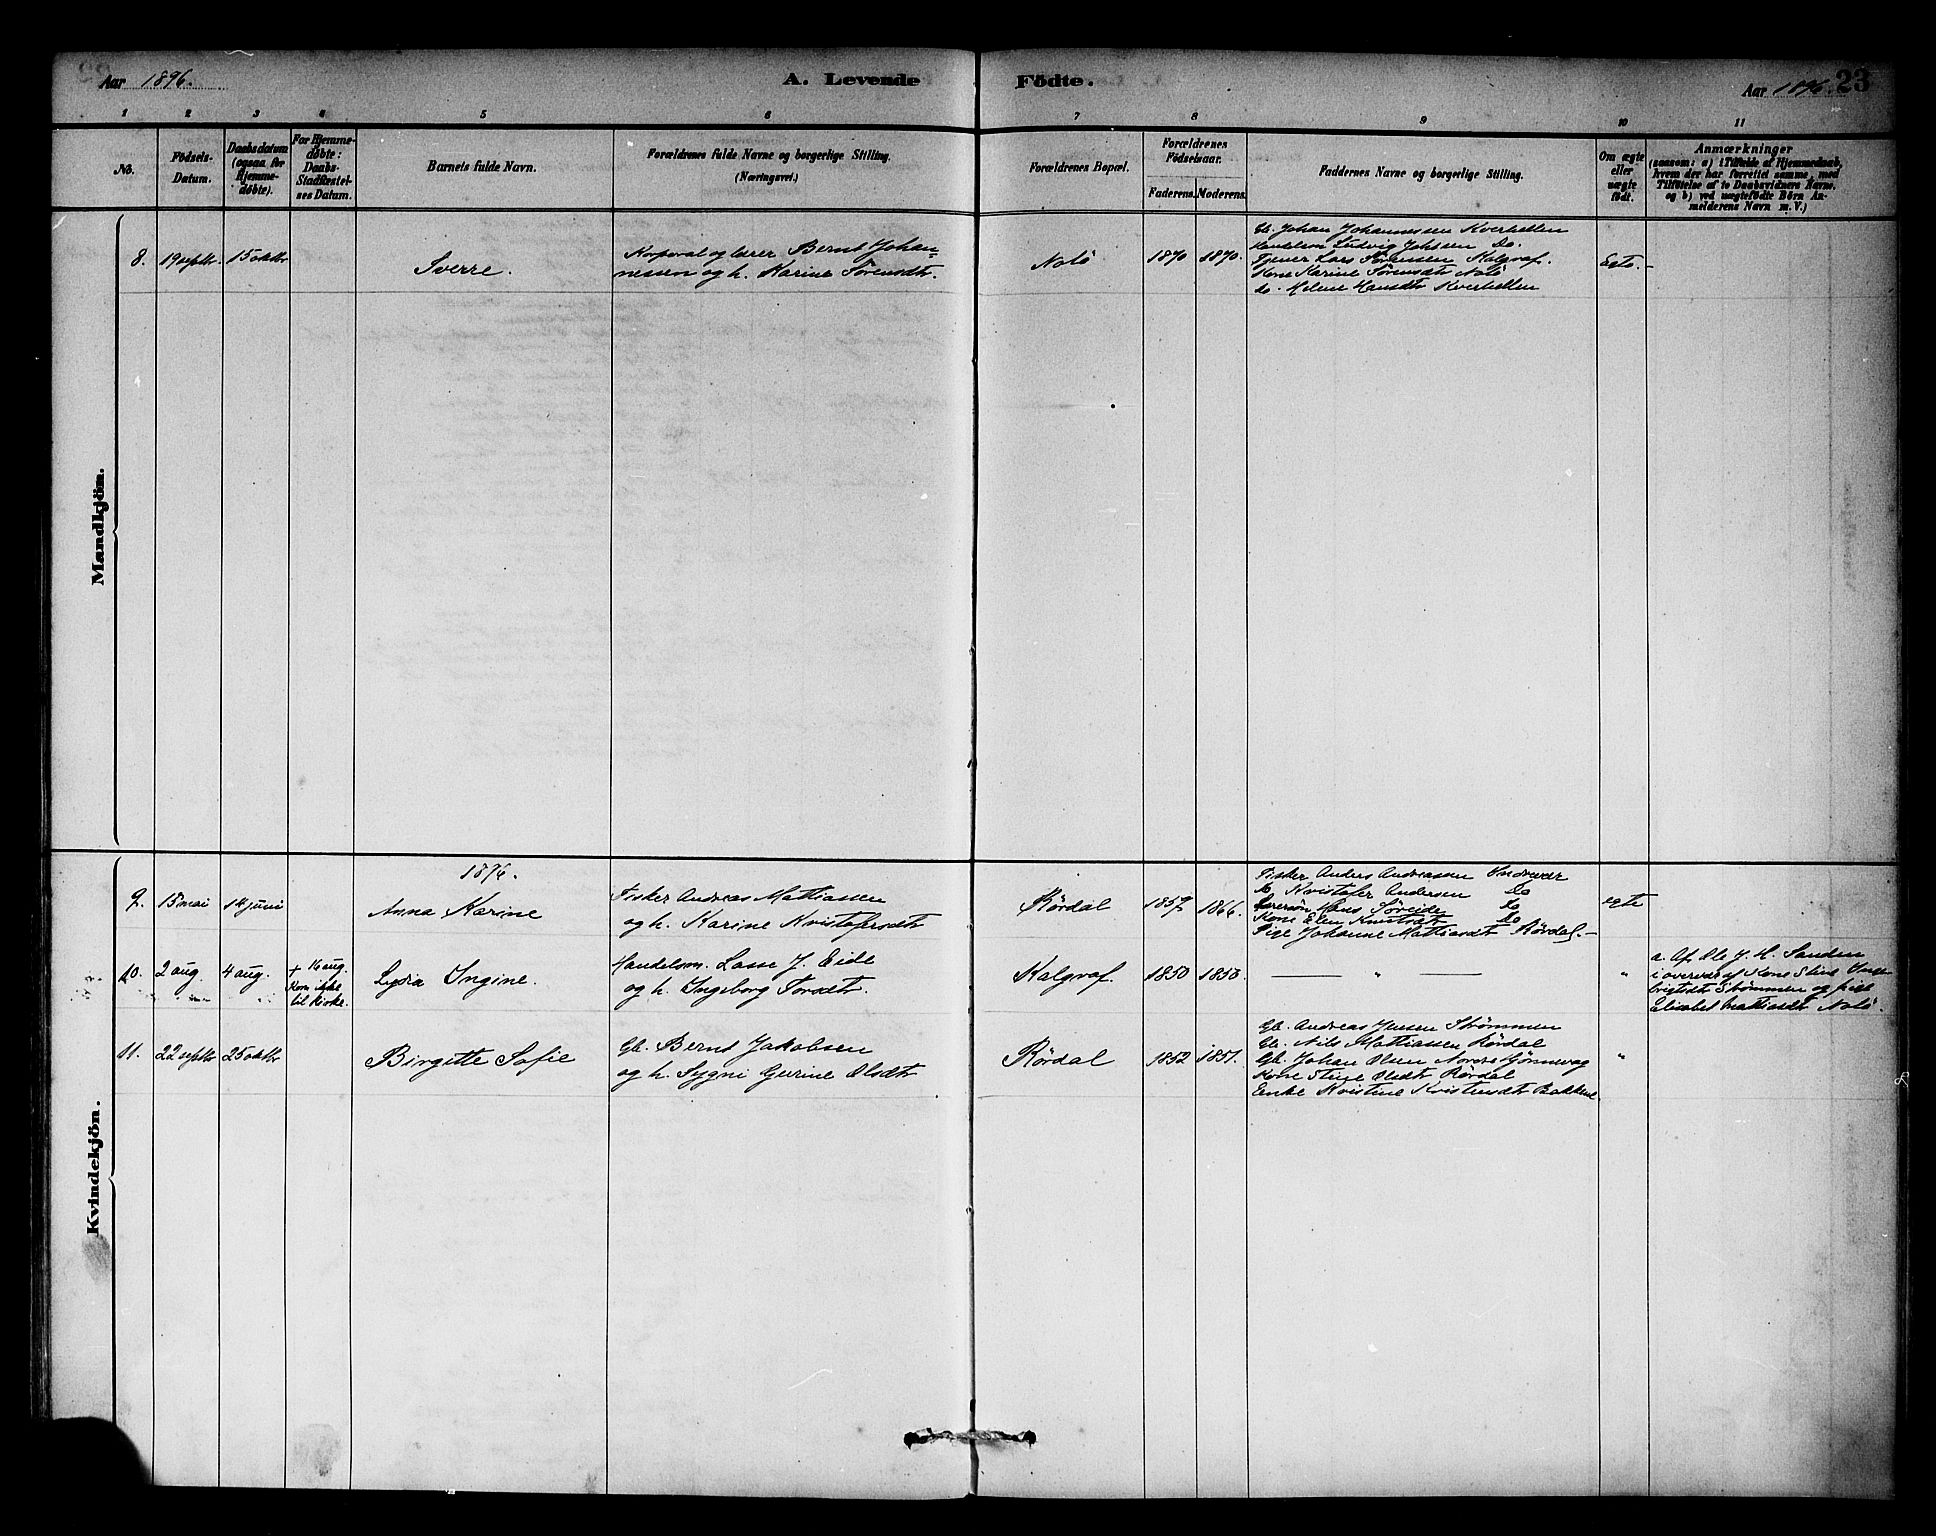 Aar 1896. A. Levende Födte. Aar 1896. 23
1 2 3 4 5 6 7 8 9 10 11
No.
Födsels-
Datum.
Daabsdatum
(ogsaa for
Hjemme-
døbte).
For Hjemme-
døbte:
Daabs-
Stadfæstel-
ses Datum.
Barnets fulde Navn.
Forældrenes fulde Navne og borgerlige Stilling.
(Næringsvei.)
Forældrenes Bopæl.
Forældrenes
Födselsaar.
Faderens. Moderens.
Faddernes Navne og borgerlige Stilling.
Om ægte
eller
uægte
födt.
Anmærkninger
(saasom: a) i Tilfælde af Hjemmedaab,
hvem der har forrettet samme, med
Tilföielse af to Daabsvidners Navne.
og b) ved uægtefödte Börn An-
melderens Navn m. V.)
Mandkjön.
8. 19 septbr. 15 oktbr
Sverre.
Korporal og lærer Bernt Johan-
nessen og h. Karine Sörensdtr.
Nolö 1870 1870.
Gb. Johan Johannessen Kverhellen
Handelsm Ludvig Johsen Do.
Tjener Lars Sörensen Kalgraf.
Kone Karine Sörensdtr Nolö
do. Helene Hansdtr Kverhellen
Egte.
Kvindekjön.
1896.
9. 15 mai 14 juni
Anna Karine
Fisker Andreas Mattiassen
og h. Karine Kristofersdtr
Rördal 1859 1866.
Fisker Anders Andreassen Indrevær
do Kristofer Andersen Do
Hans Søreide Do
Kone Elen Knutsdtr Do
Pige Johanne Mattiasdtr Rördal.
egte
10. 2 aug. 4 aug.
+ 16 aug.
Kom ikke
til kirke.
Lydia Ingine.
Handelsm. Lasse J. Eide
og h. Ingeborg Torsdtr.
Kalgraf. 1850 1853.
"
"
a. Af Ole J. H. Sanden
i overvær af Kone Stine Inge-
brigtsdtr Strømmen og pige
Elisabet Mattiasdtr Nolö.
11. 22 septbr 25 oktbr
Birgitte Sofie
Gb. Bernt Jakobsen
og h. Sygni Gurine Olsdtr
Rördal 1852 1851.
Gb. Andreas Jensen Strømmen
Gb. Nils Mattiassen Rördal
Gb. Johan Olsen Nordre
Kone Stine Olsdtr Rördal
Enke Kristine Kristensdtr Bakkene
"